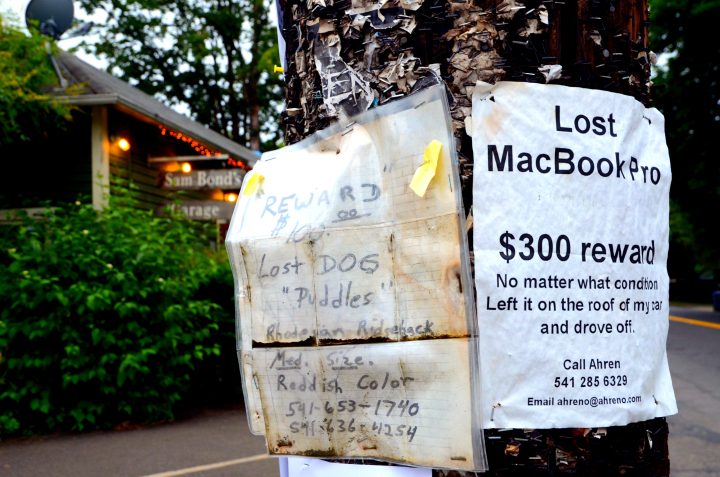 Sam Bond's
Garage
"REWARD"
$100 00
Lost DOG
"Puddles"
Rhodesian Ridgeback
Med. Size.
Reddish Color
541-653-1740
541-636-4254
Lost
MacBook Pro
$300 reward
No matter what condition
Left it on the roof of my car
and drove off.
Call Ahren
541 285 6329
Email ahreno@ahreno.com